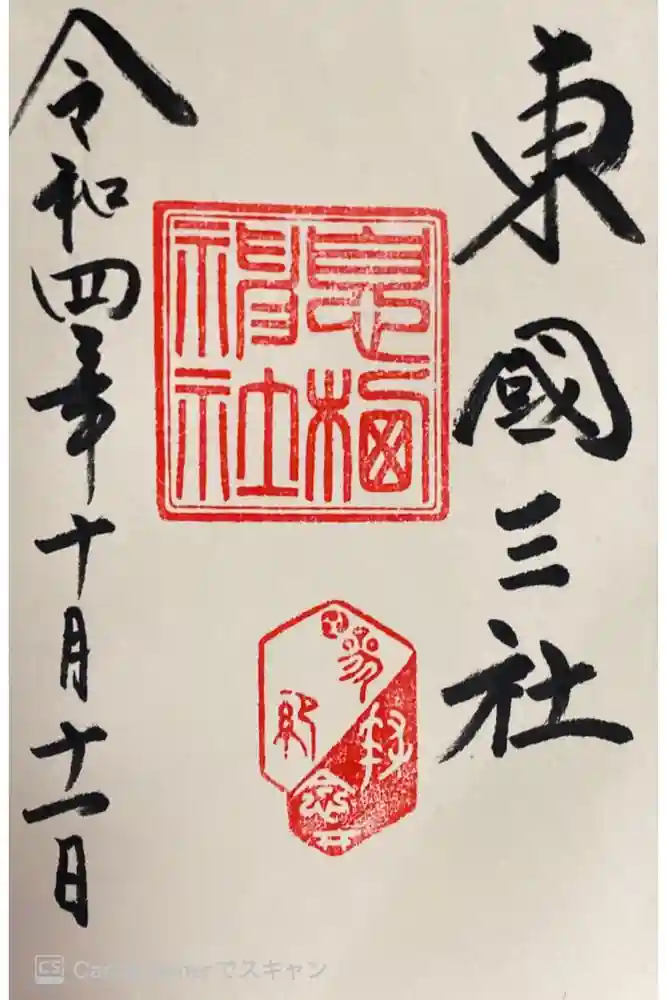 東國三社
息栖神社
令和四年十月十一日
CS CamScannerでスキャン